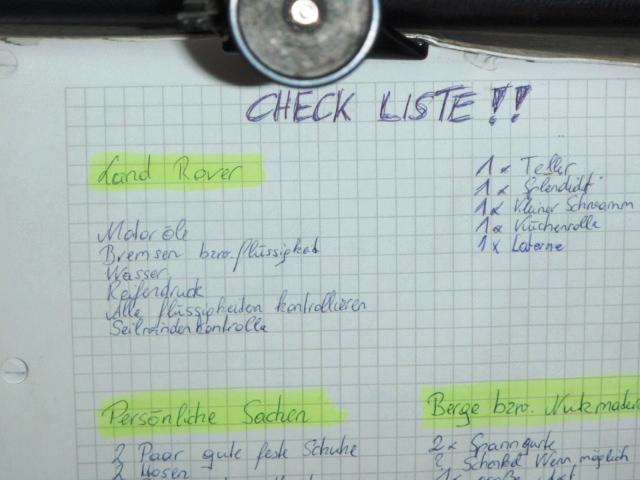 CHECK LISTE !!
Land Rover
Motoröle
Bremsen bzw. flüssigkeit
Wasser
Reifendruck
Alle flüssigkeiten kontrollieren
Seilwindenkontrolle
1 x Teller
1 x
1 x Kleiner Schwamm
1 x Küchenrolle
1 x Laterne
Persönliche Sachen
2 Paar gute feste Schuhe
2 Hosen
Berge bzw.
2 x Spanngurte
2 Schäckel Wenn möglich